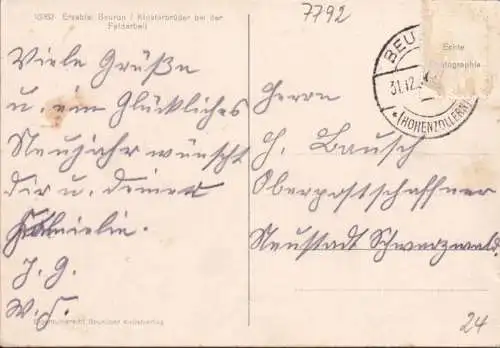 10262 Erzabtei Beuron / Klosterbrüder bei der
Feldarbeit
7792
Viele Grüße
u. ein Glückliches
Neujahr wünscht
dir u. deiner
Familie.
J. G.
W. J.
BEU
31.12.
*(HOHENZOLLERN)
Echte
Photographie
Herrn
H. Bausch
Oberpostschaffner
Neustadt Schwarzwald.
Beuroner Kunstverlag
24